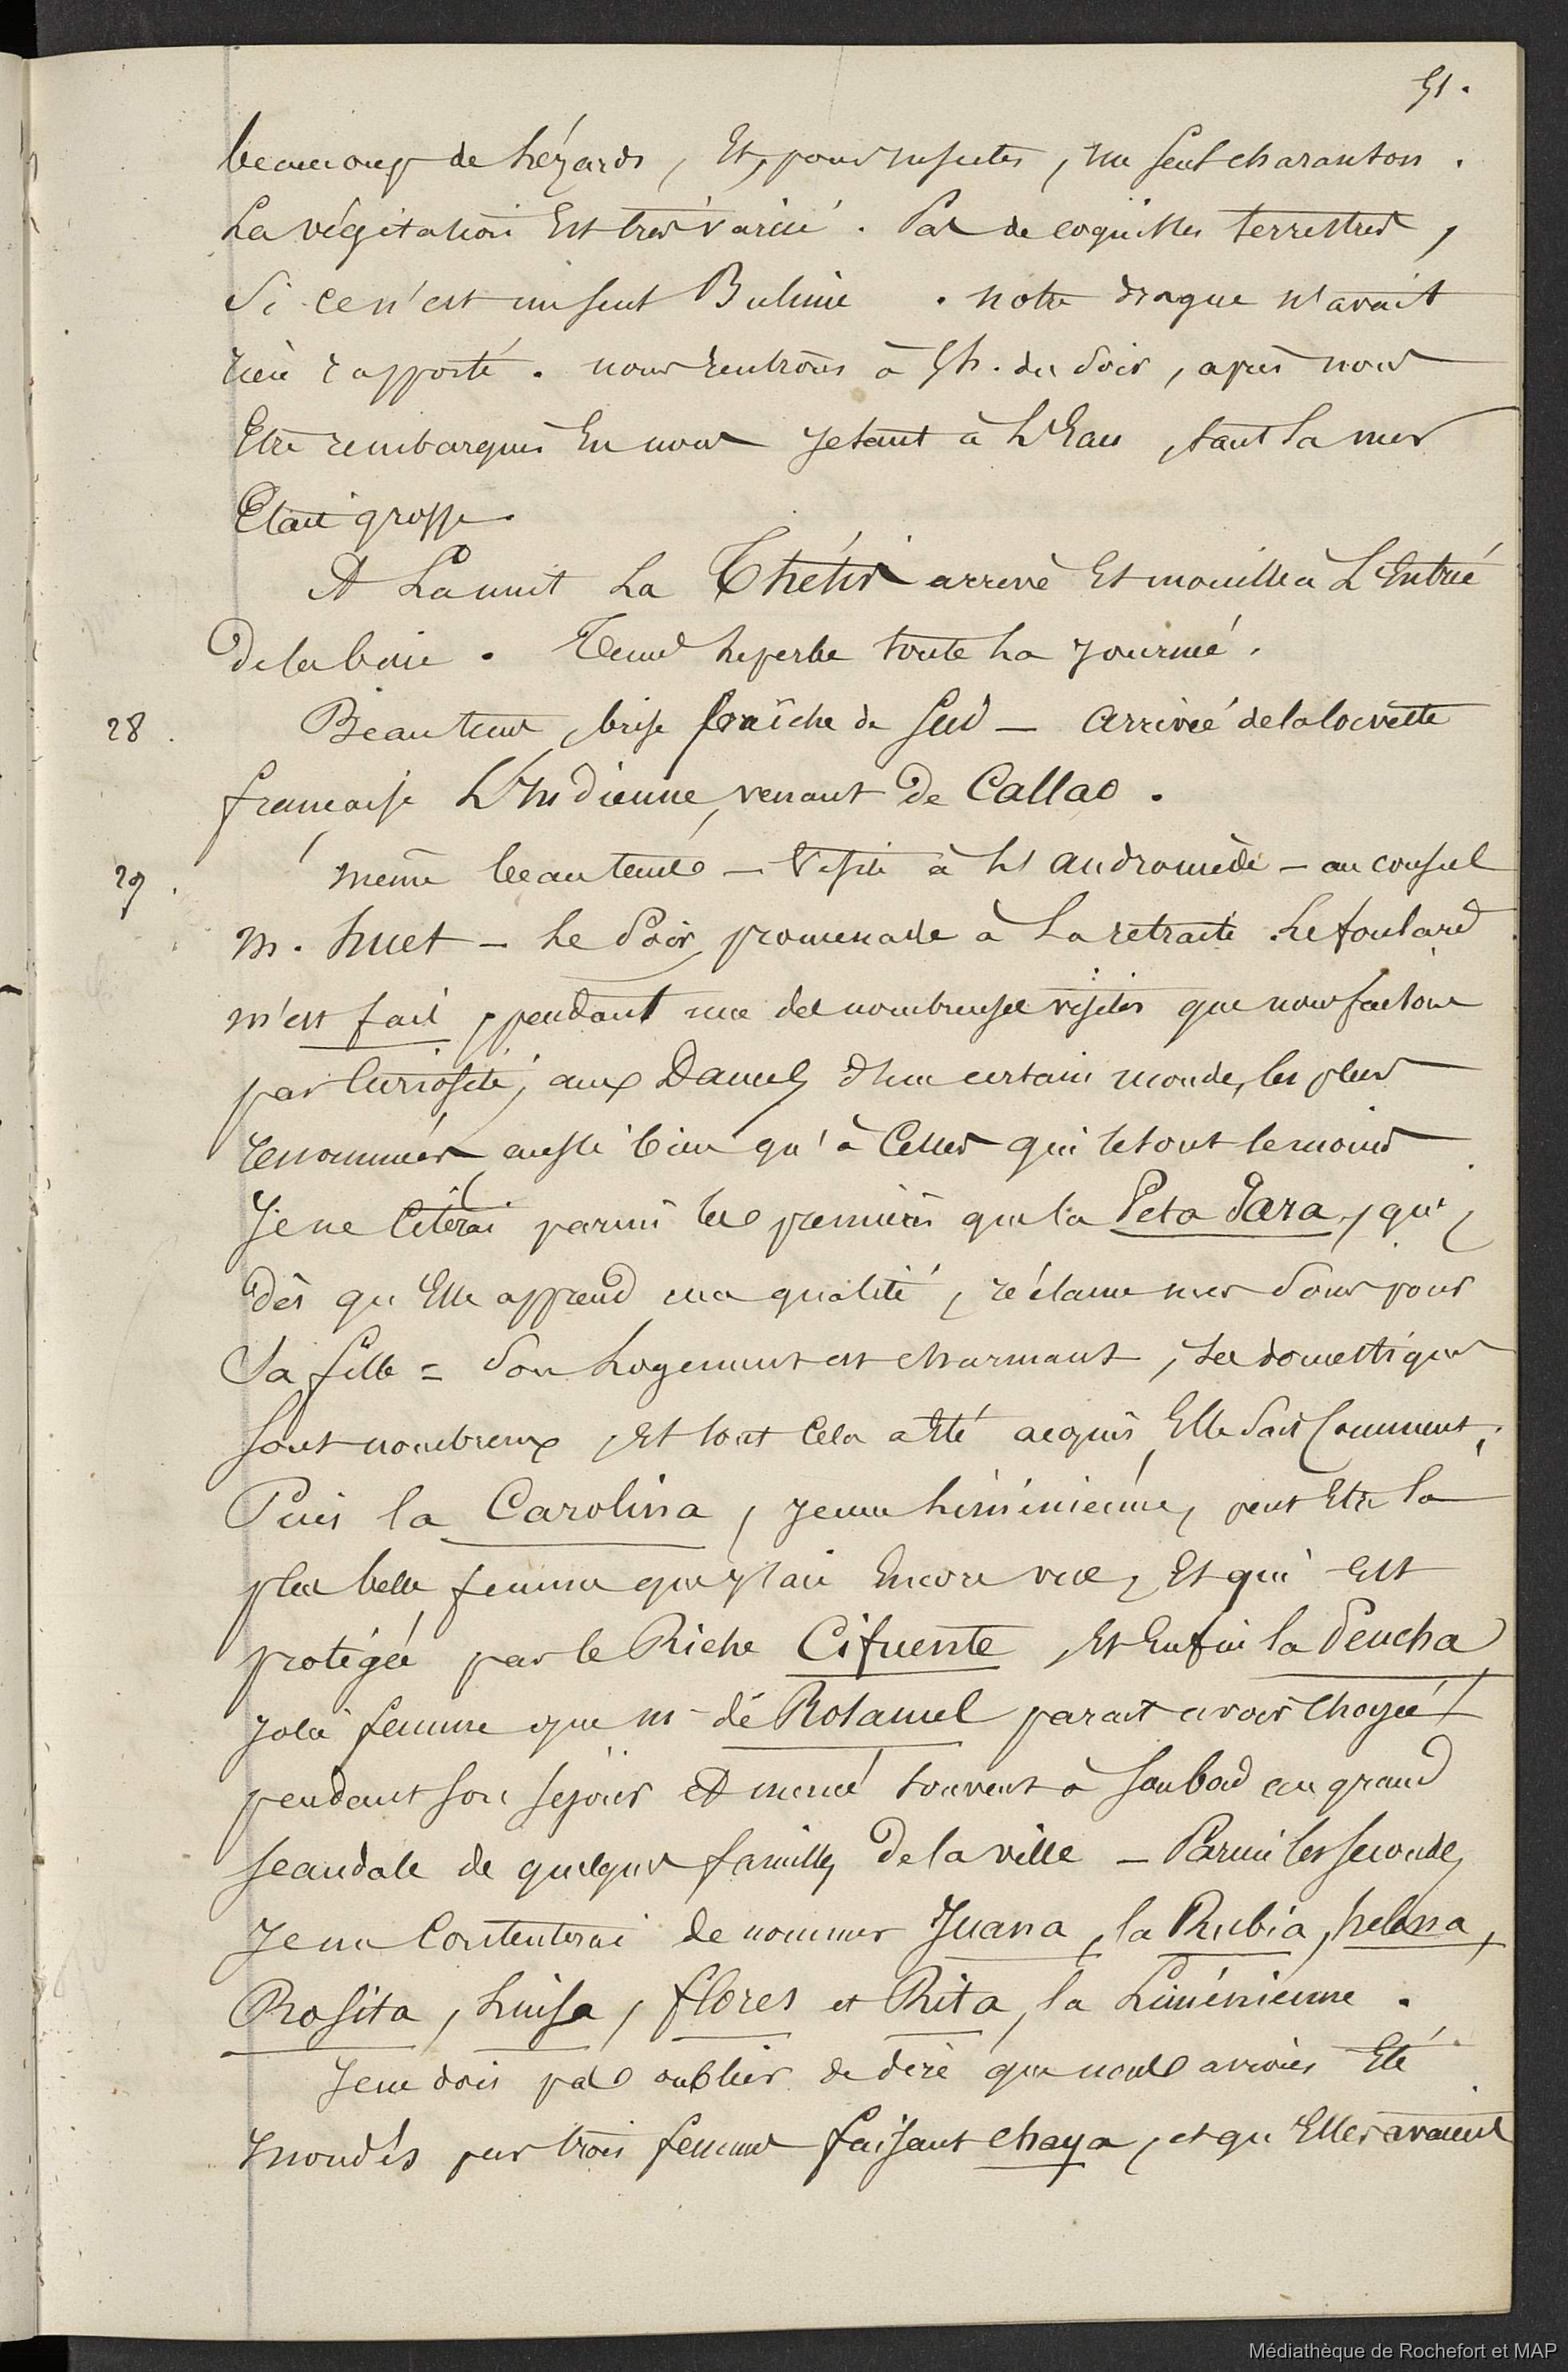 51.
beaucoup de Lézards, Et, pour insectes, un seul charanson.
La végétation Est très variée. Pas de coquilles terrestres,
Si ce n'est un seul Bulime . notre drague n'avait
rien rapporté. nous rentrons à 5h. du Soir, après nous
Etre rembarqués En nous jetant à L'Eau, tant la mer
Etait grosse.
A La nuit La Thétis arrive Et mouille à L'Entrée
De la baie. Tems superbe toute La journée.
28. Beau tems, brise fraîche de Sud — arrivée de la corvette
française L'Indienne, venant De Callao.
29. même beau tems — Visite à L'andromède — au consul
m. huet — Le Soir, promenade à La retraite. Le foulard
m'est fait, pendant une des nombreuses visites que nous faisons
par Curiosité, aux Dames d'un certain monde, les plus
renommées aussi bien qu'à Celles qui le sont le moins.
Je ne Citerai parmi les premières que la Peta Jara, qui,
dès qu'Elle apprend ma qualité, réclame mes soins pour
Sa fille = Son Logement est charmant, ses domestiques
Sont nombreux, Et tout Cela a Eté acquis Elle Sait Comment;
Puis la Carolina, jeune Liménienne, peut Etre la
plus belle femme que j'aie Encore vue, Et qui Est
protégée par le Riche Cifuente, Et Enfin la Peucha,
jolie femme que m. de Rosamel parait avoir choyée
pendant son séjour Et menée souvent à son bord au grand
scandale de quelques familles De la ville — Parmi les secondes,
Je me Contenterai de nommer Juana, la Rubia, helena,
Rosita, Luisa, flores et Rita, la Liménienne.
Je ne dois pas oublier de dire que nous avions Eté
inondés par trois femmes faisant chaya, et qu'Elles avaient
Médiathèque de Rochefort et MAP